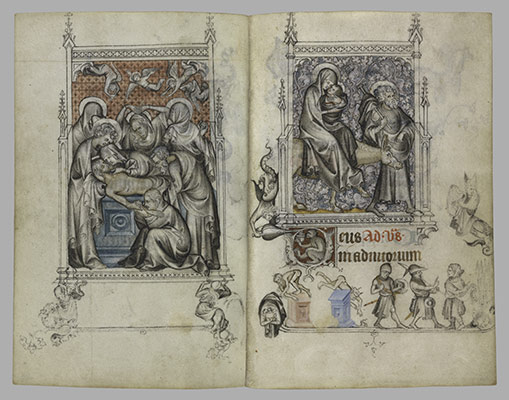 Deus Ad. Vs.
in adiutorium